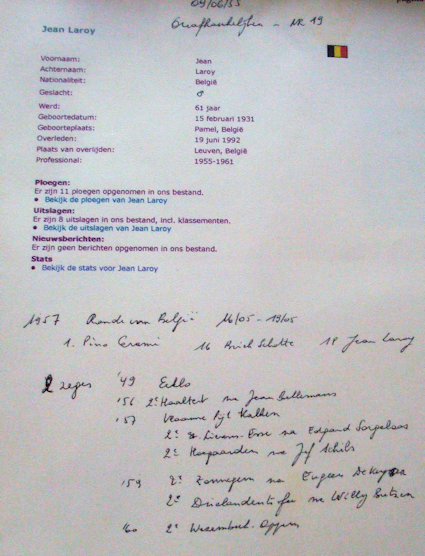 09/06/55
Jean Laroy Onafhankelijken - NR 19
Voornaam: Jean
Achternaam: Laroy
Nationaliteit: België
Geslacht: ♂
Werd: 61 jaar
Geboortedatum: 15 februari 1931
Geboorteplaats: Pamel, België
Overleden: 19 juni 1992
Plaats van overlijden: Leuven, België
Professional: 1955-1961
Ploegen:
Er zijn 11 ploegen opgenomen in ons bestand.
• Bekijk de ploegen van Jean Laroy
Uitslagen:
Er zijn 8 uitslagen in ons bestand, incl. klassementen.
• Bekijk de uitslagen van Jean Laroy
Nieuwsberichten:
Er zijn geen berichten opgenomen in ons bestand.
Stats
• Bekijk de stats voor Jean Laroy
1957 Ronde van België 16/05 - 19/05
1. Pino Cerami 16 Briek Schotte 18 Jean Laroy
2 zeges '49 Eeklo
'56 2e Haaltert na Jean
'57 Vlaamse Pijl Kalken
2e St Lievens Esse na Edgard Sorgeloos
2e Hoegaarden na Jef Schils
'59 2e Zonnegem na Eugeen De Keyser
2e na Willy
'60 2e Wezembeek-Oppem